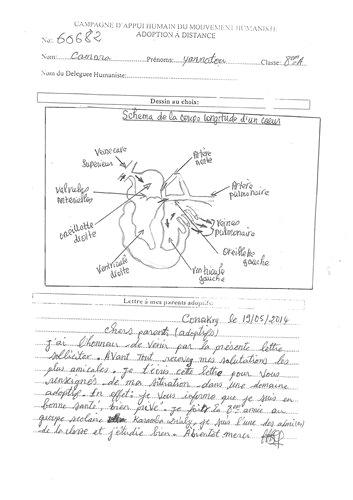 CAMPAGNE D'APPUI HUMAIN DU MOUVEMENT HUMANISTE
ADOPTION À DISTANCE
No: 60682
Nom: Camara Prénoms: yannatou Classe: 8èmeA
Nom du Délégué Humaniste:
Dessin au choix:
Schema de la coupe longitude d'un coeur
Veine cave
Superieur
Artère
Aorte
Valvules
Arterielles
Artère
pulmonaire
Veines
pulmonaire
Oreillette
droite
Oreillette
gauche
Ventricule
droite
Ventricule
gauche
Lettre à mes parents adoptifs:
Conakry le 19/05/2014
Chers parents (adoptifs)
j'ai l'honneur de venir par la présente lettre
solliciter. Avant tout recevez mes salutations les
plus amicales. Je t'écris cette lettre pour vous
renseignés de ma situation dans une domaine
adoptif. En effet je vous informe que je suis en
bonne santé, bien privé. je fait la 8ème année au
groupe scolaire je suis l'une des
de la classe et j'étudie bien. A bientôt merci